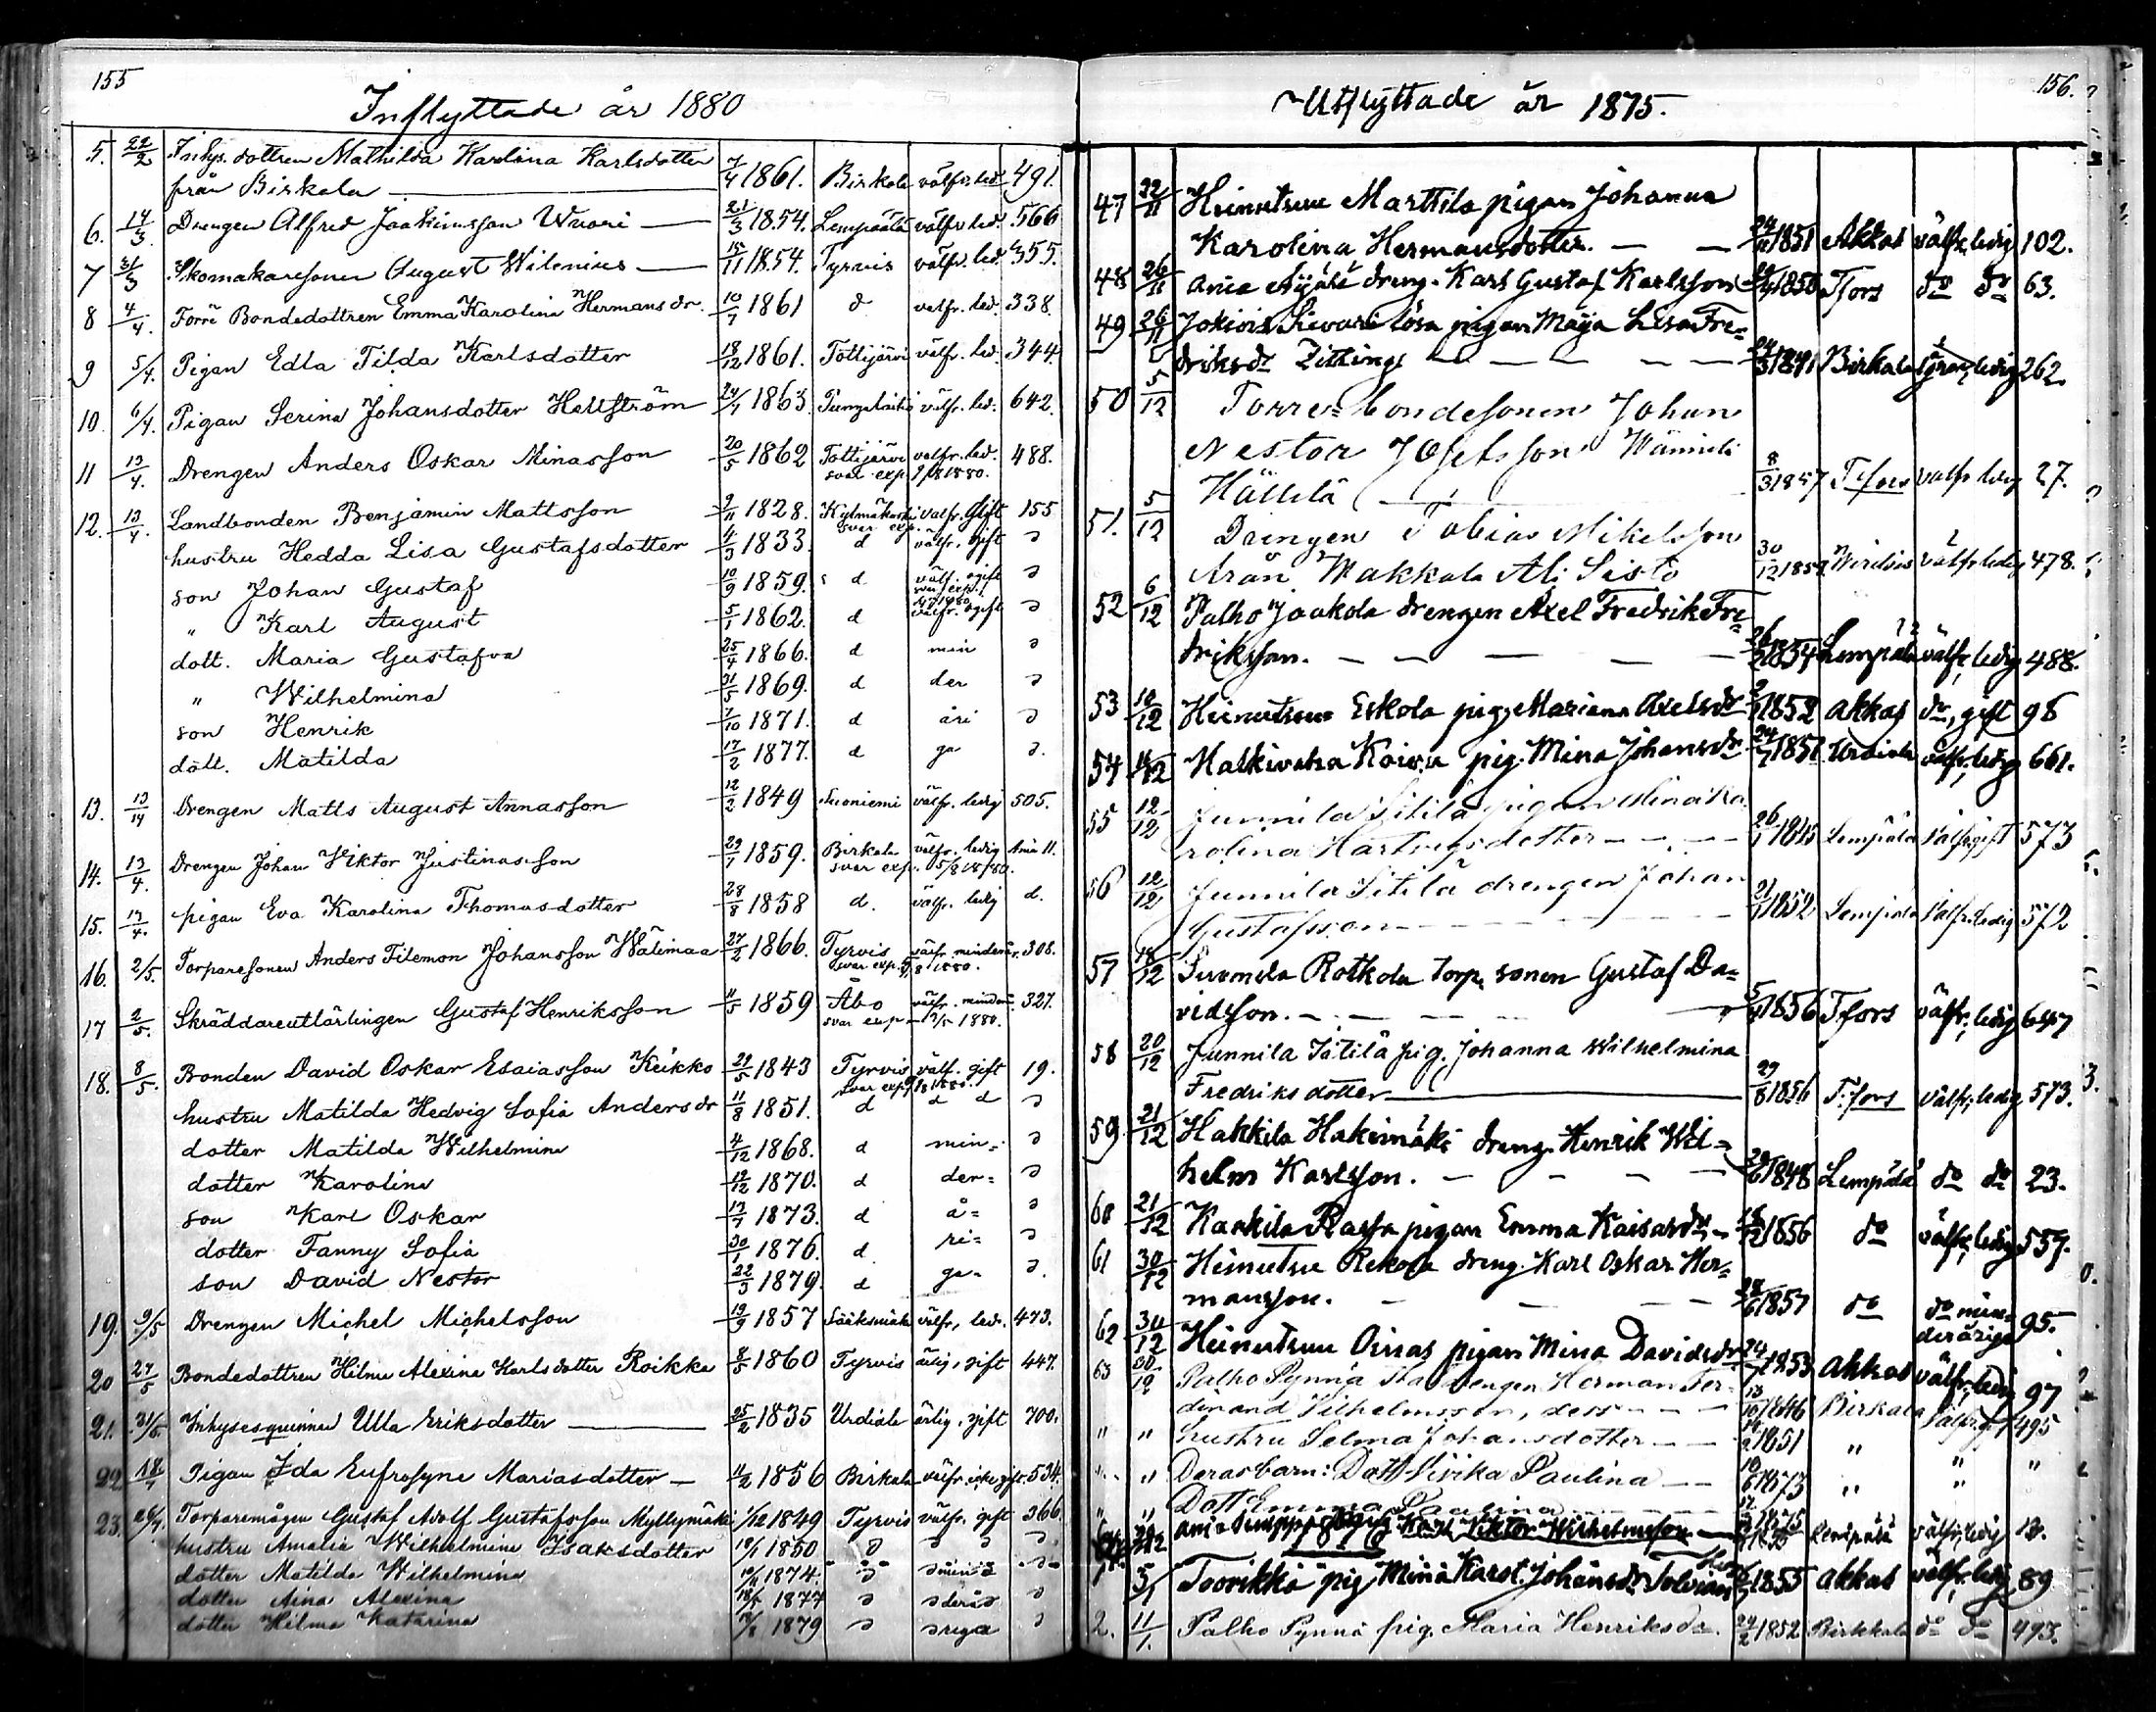 155
Inflyttade år 1880
5. 22/2 Inhys. dottren Mathilda Karolina Karlsdotter
från Birkala 7/4 1861. Birkala välfr. led. 491.
6. 14/3. Drengen Alfred Joakimsson Wuori 21/3 1854. Lempäälä välfr. led. 566
7 31/3 Skomakaresonen August Wilenius 15/11 1854. Tyrvis välfr. led. 355.
8 4/4. Förre Bondedottren Emma Karolina Hermansdr. 10/7 1861 d välfr. led. 338.
9 5/4. Pigan Edla Tilda Karlsdotter 18/12 1861. Tottijärvi välfr. led. 344
10. 6/4. Pigan Serina Johansdotter Hellström 24/1 1863. välfr. led. 642.
11 13/4. Drengen Anders Oskar Minasson 20/5 1862 Tottijärvi välfr. led. 488.
svar exp. 1880.
12. 13/4. Landbonden Benjamin Mattsson 9/11 1828. Kylmäkoski välfr. gift 155
svar exp.
hustru Hedda Lisa Gustafsdotter 4/3 1833. d välfr. gift d
son Johan Gustaf 10/9 1859. d välf. ogift d
" Karl August 5/1 1862. d välfr. ogift d
dott. Maria Gustafva 25/4 1866. d min d
" Wilhelmina 31/5 1869. d der d
son Henrik 7/10 1871. d åri d
dott. Matilda 17/2 1877. d ga d.
13. 13/14 Drengen Matts August Annasson 12/2 1849 Suoniemi välfr. ledig 505.
14. 13/4. Drengen Johan Viktor Justinasson 29/1 1859. Birkala välfr. ledig Ania 11.
svar exp. 1880.
15. 17/4. pigan Eva Karolina Thomasdotter 28/8 1858 d. välfr. ledig d.
16. 2/5. Torparesonen Anders Filemon Johansson Wälimaa 27/2 1866. Tyrvis välfr. minderår. 308.
svar exp. 1880.
17 2/5. Skräddareutlärlingen Gustaf Henriksson 11/5 1859 Åbo välfr. minder. 327.
svar exp 12/5 1880.
18. 8/5. Bonden David Oskar Esaiasson Keikko 29/5 1843 Tyrvis välf. gift 19.
svar exp. 1880.
hustru Matilda Hedvig Sofia Andersdr 11/8 1851. d d d d
dotter Matilda Wilhelmina 4/12 1868. d min- d
dotter Karolina 19/12 1870. d der= d
son Karl Oskar 13/7 1873. d å= d
dotter Fanny Sofia 30/1 1876. d ri= d
son David Nestor 22/3 1879. d ga- d.
19. 9/5 Drengen Michel Michelsson 19/9 1857 Sääksmäki välfr. led. 473.
20 27/5 Bondedottren Hilma Alexina Karlsdotter Roikka 8/5 1860 Tyrvis ärlig, gift 447.
21. 31/5. Inhysesqvinnan Ulla Eriksdotter 25/2 1835 Urdiala ärlig, gift 700.
22. 18/7 Pigan Ida Eufrosyne Mariasdotter 11/2 1856 Birkala välfr. icke gift. 534.
23. Torparemågen Gustaf Adolf Gustafsson Myllymäki 1/12 1849 Tyrvis välfr. gift 366
hustru Amalia Wilhelmina Isaksdotter 18/1 1850 d d d d.
dotter Matilda Wilhelmina 1874. d d min d d
dotter Aina Alexina 1877 d d derå d d
dotter Hilma Katarina 1879 d d riga d
156.
Utflyttade år 1875.
47 22/11 Heinutsuu Marttila pigan Johanna
Karolina Hermansdotter. 1851 Akkas välfr. ledig 102.
48 26/11 Ania Äijälä dreng. Karl Gustaf Karlsson 1850 Tfors do do 63.
49 26/11 Jokiois Sivari lösa pigan Maja Lisa Fre=
driksdr Zitting 1841 Birkala ledig 262.
50 5/12 Torre bondesonen Johan
Nestor Josefsson Wänni
Hällilä 8/3 1857 T.fors välfr. ledig 27.
51. 5/12 Drengen Tobias Mikelsson
från Makkala Ali Sisto 30/12 185 Wirdois välfr. ledig 478.
52 6/12 Palho Jaakola drengen Axel Fredrik Fre=
driksson. 1854 Lempälä välfr, ledig 488.
53 10/12 Heinutsuu Eskola pig. Mariana Axelsdr 1852 Akkas do, gift 98
54 11/12 Halkivaha Koivu pig. Mina Johansdr 24/7 1851 Urdiala välfr, ledig 661.
55 12/12 Junnila Sitilä pigan Mina Ka
rolina Hartvigsdotter 26/1 1845 Lempäla välfr. gift 573
56 12/12 Junnila Sitilä drengen Johan
Gustafsson 21/7 1852 Lempäla välfr. ledig 572
57 18/12 Suomela Rotkola torp. sonen Gustaf Da=
vidsson. 1856 Tfors välfr, ledig 647
58 20/12 Junnila Sitilä pig. Johanna Wilhelmina
Fredriksdotter 29/8 1856 T.fors välfr, ledig 573.
59 21/12 Hakkila Hakimäki dreng. Henrik Wil=
helm Karlsson. 1848 Lempälä do do 23.
60 21/12 Kaakila Rasfa pigan Emma Kaisasdr 1856 do välfr, ledig 557.
61 30/12 Heinutsuu Rekola dreng. Karl Oskar Her=
mansson. 1857 do do min=
deråriga 95.
62 30/12 Heinutsuu Oinas pigan Mina Davidsdr 24/7 1853 Akkas välfr, ledig 97
63 30/12 Palho Pynnä drengen Herman Fer-
dinand Vilhelmsson, dess 13/10 1846 Birkala välfr. gift 495
" " hustru Selma Johansdotter 1851 " " "
" " Derasbarn: Dott. Vivika Paulina 10/6 1873 " "
" " Dott. Emma Paulina 1875
Ania Viktor Wilhelmsson Lempälä välfr, ledig
1876
5/1 Toorikka pig. Mina Karol. Johansdr 1855 Akkas välfr. ledig 89
2. 11/1. Palho Pynnä pig. Maria Henriksdr. 24/2 1852 Birkkala do do 493.